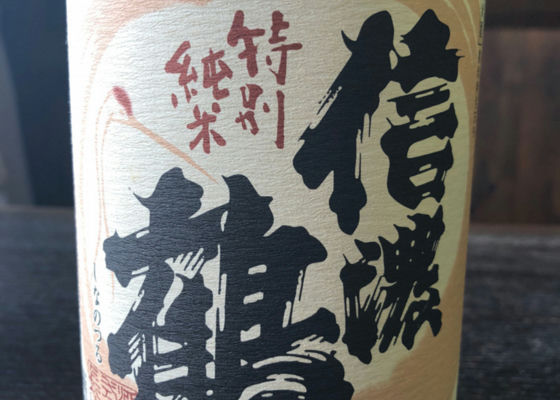 信濃
鶴
特別
純米
しなのつる